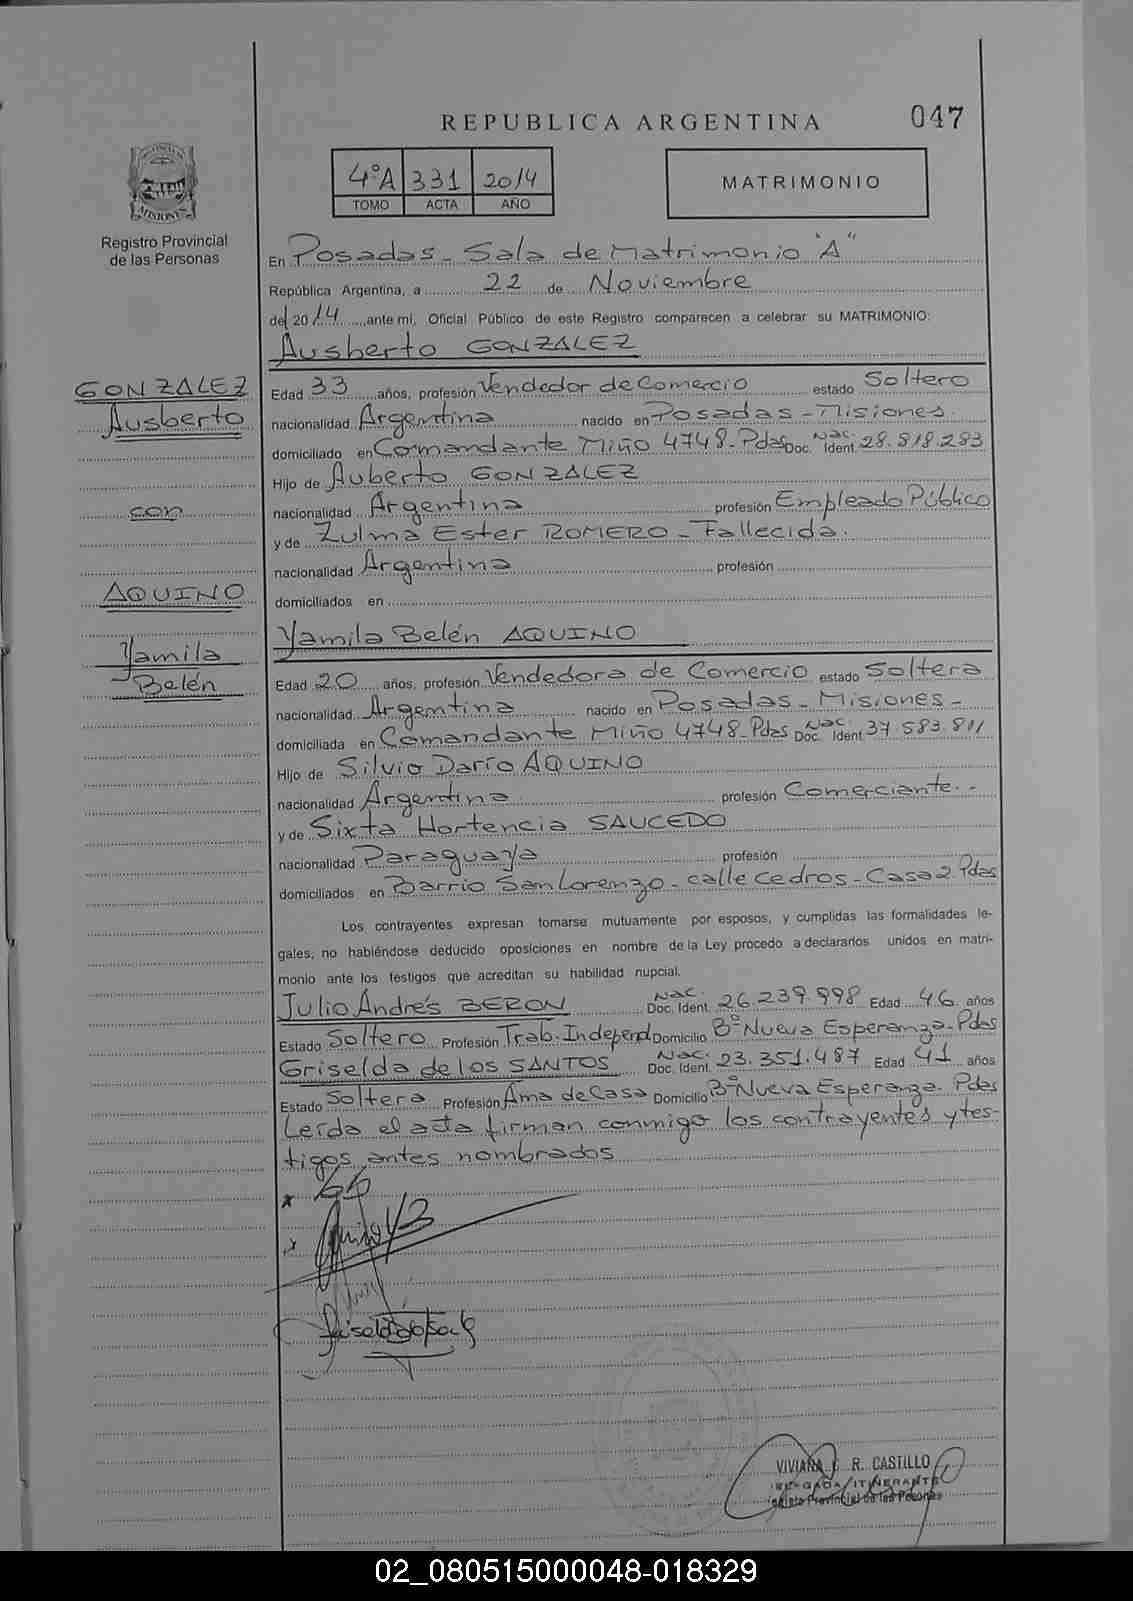 REPUBLICA ARGENTINA
047
4°A 331 2014
TOMO ACTA AÑO
MATRIMONIO
MISIONES
Registro Provincial
de las Personas
En Posadas - Sala de Matrimonio "A"
República Argentina, a 22 de Noviembre
del 2014, ante mi, Oficial Público de este Registro comparecen a celebrar su MATRIMONIO:
Ausberto GONZALEZ
GONZALEZ
Ausberto
con
AQUINO
Yamila
Belén
Edad 33 años, profesión Vendedor de Comercio estado Soltero
nacionalidad Argentina nacido en Posadas - Misiones.
domiciliado en Comandante Miño 4748 - Pdas Doc. Nac. Ident. 28.818.283
Hijo de Auberto GONZALEZ
nacionalidad Argentina profesión Empleado Público
y de Zulma Ester ROMERO - Fallecida.
nacionalidad Argentina profesión
domiciliados en
Yamila Belén AQUINO
Edad 20 años, profesión Vendedora de Comercio estado Soltera
nacionalidad Argentina nacido en Posadas - Misiones -
domiciliada en Comandante Miño 4748 - Pdas Doc. Nac. Ident 37.583.811
Hijo de Silvio Darío AQUINO
nacionalidad Argentina profesión Comerciante.-
y de Sixta Hortencia SAUCEDO
nacionalidad Paraguaya profesión
domiciliados en Barrio San Lorenzo - calle cedros - Casa 2 Pdas
Los contrayentes expresan tomarse mutuamente por esposos, y cumplidas las formalidades le-
gales, no habiéndose deducido oposiciones en nombre de la Ley procedo a declararlos unidos en matri-
monio ante los testigos que acreditan su habilidad nupcial.
Julio Andrés BERON Nac. Doc. Ident. 26.239.998 Edad 46 años
Estado Soltero Profesión Trab. Independ Domicilio B° Nueva Esperanza - Pdas
Griselda de los SANTOS Nac. Doc. Ident. 23.351.487 Edad 41 años
Estado Soltera Profesión Ama de Casa Domicilio B° Nueva Esperanza - Pdas
Leída el acta firman conmigo los contrayentes y tes-
tigos antes nombrados
VIVIANA R. CASTILLO
DELEGADA ITINERANTE
Registro Provincial de las Personas
02_080515000048-018329